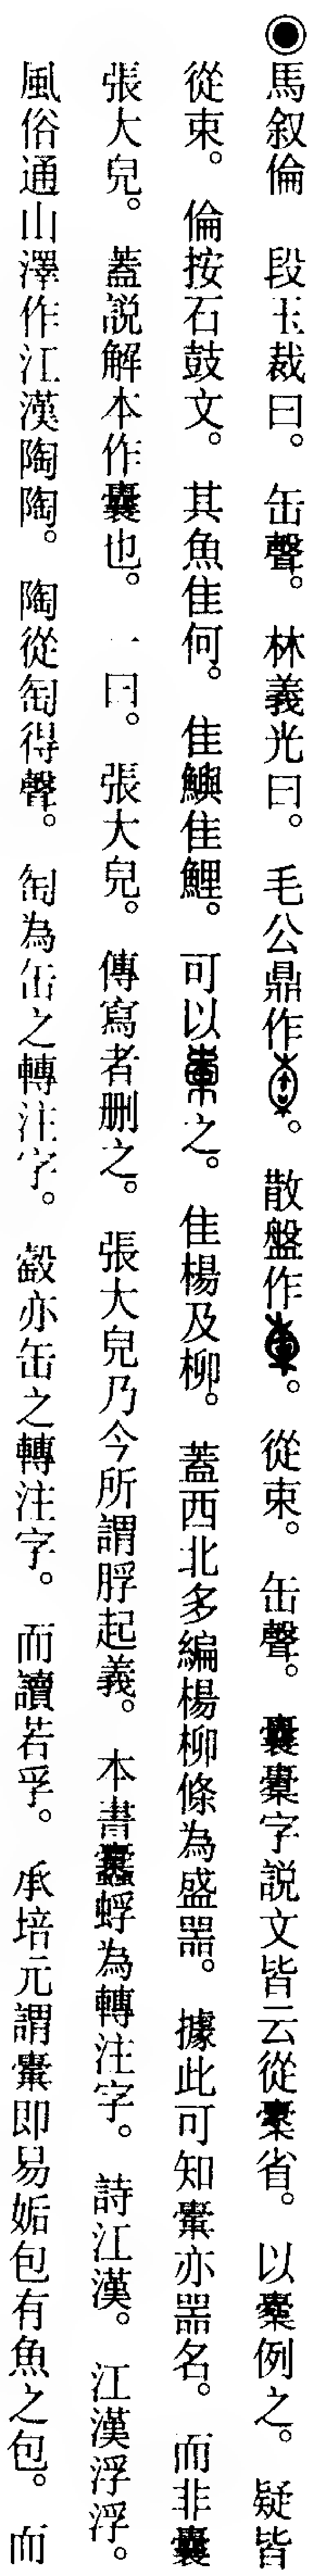 ◉馬叙倫　段玉裁曰。缶聲。林義光曰。毛公鼎作。散盤作。從束。缶聲。囊橐字說文皆云從㯻省。以㯻例之。疑皆
從束。倫按石鼓文。其魚隹何。隹鱮隹鯉。可以之。隹楊及柳。蓋西北多編楊柳條為盛噐。據此可知橐亦噐名。而非囊
張大皃。蓋說解本作囊也。一曰。張大皃。傳寫者刪之。張大皃乃今所謂脬起義。本書蜉為轉注字。詩江漢。江漢浮浮。
風俗通山澤作江漢陶陶。陶從匋得聲。匋為缶之轉注字。㲄亦缶之轉注字。而讀若孚。承培元謂即易姤包有魚之包。而